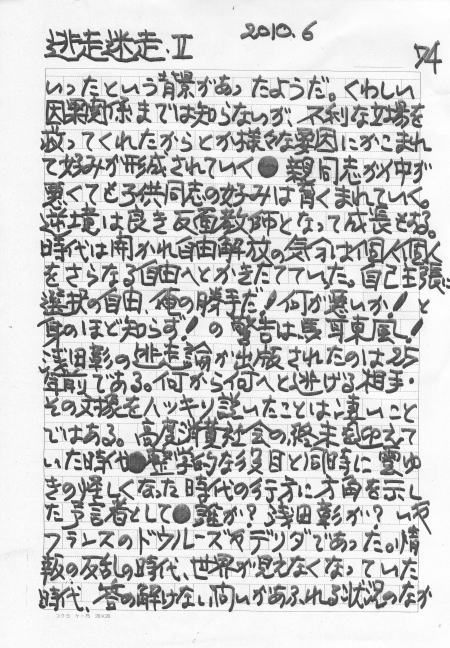 逃走迷走.Ⅱ 2010.6
74
いったという背景があったようだ。くわしい
因果関係までは知らないが、不利な立場を
救ってくれたからとか様々な要因にかこまれ
て好みが形成されていく● 親同志が仲が
悪くても子供同志の好みは育くまれていく。
逆境は良き反面教師となって成長せる。
時代は開かれ自由解放の気分は個人個人
をさらなる自由へとかきたてていた。自己主張に
選択の自由、俺の勝手だ！何が悪いか！と
身のほど知らず！の警告は馬耳東風！
浅田彰の逃走論が出版されたのは25
年前である。何から何へと逃げる相手・
その対象をハッキリ説いたことは凄いこと
ではある。高度消費社会の終末を迎えて
いた時代●哲学的な役目と同時に雲ゆ
きの怪しくなった時代の行方に方角を示し
た予言者として●誰が？浅田彰が？いや
フランスのドウルーズやデリダであった。情
報の反乱の時代、世界が見えなくなっていた
時代、答の解けない問いがあふれる状況のなか
コクヨ ケー75 20×20